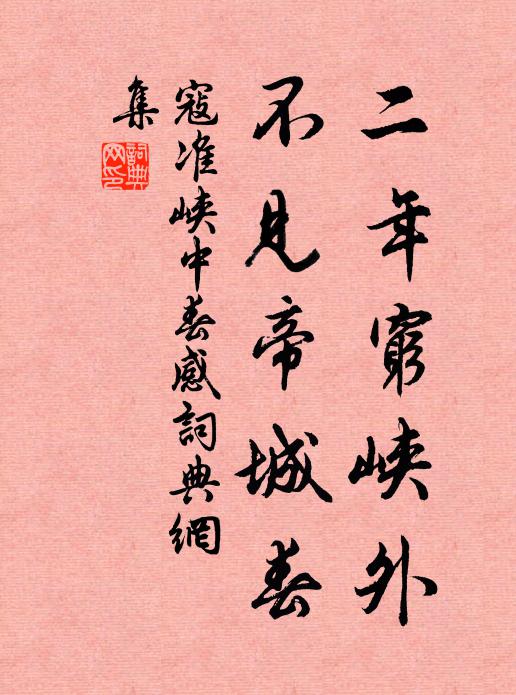 二年窮峽外
不見帝城春
寇準峽中春感詞典網
集
詞典
网印